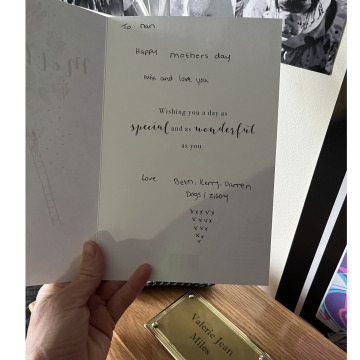 To nan
Happy mothers day
Miss and love you
Wishing you a day as
special and as wonderful
as you
Love Beth, Kerry, Darren
Dogs / Ziggy
x x x x x
x x x x
x x x
x x
x
Valerie Jean
Miles